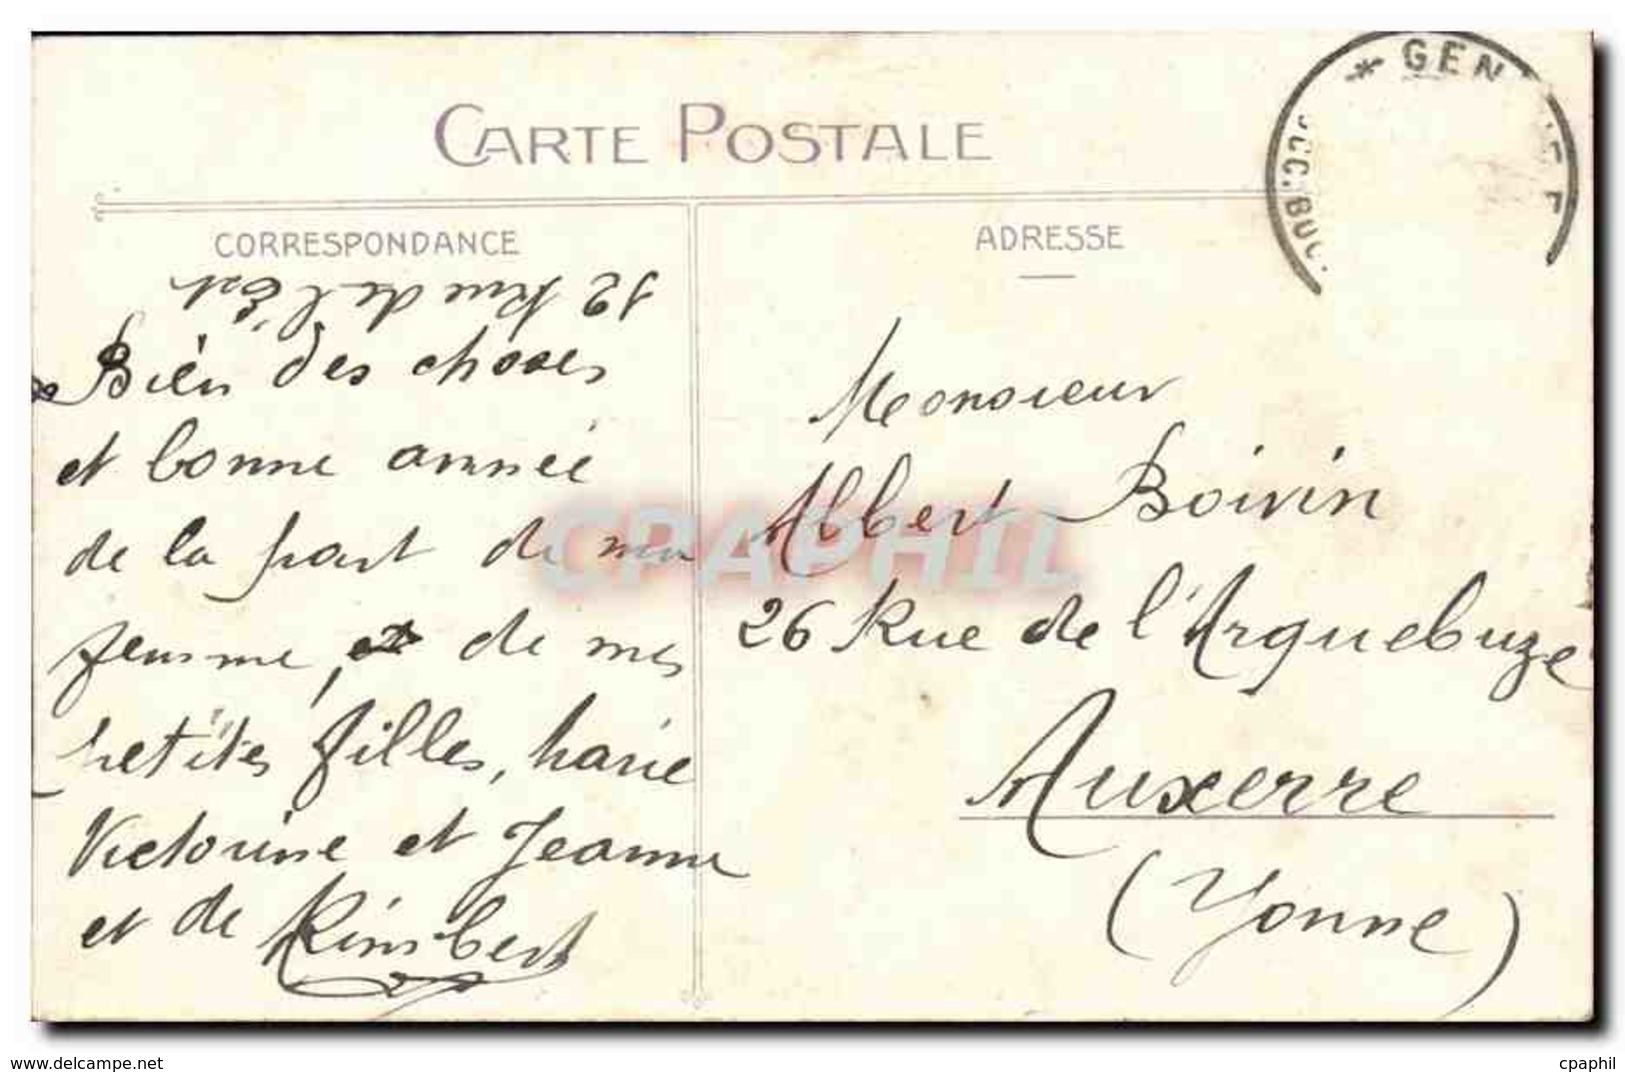 CARTE POSTALE
* GEN
CORRESPONDANCE
12 Rue de l'Est
Bien des choses
et bonne année
de la part de ma
femme, et de mes
petites filles, Marie
Victorine et Jeanne
et de Rimbert
ADRESSE
Monsieur
Albert Boivin
26 Rue de l'Arquebuze
Auxerre
(Yonne)
CPAPHIL
www.delcampe.net
cpaphil